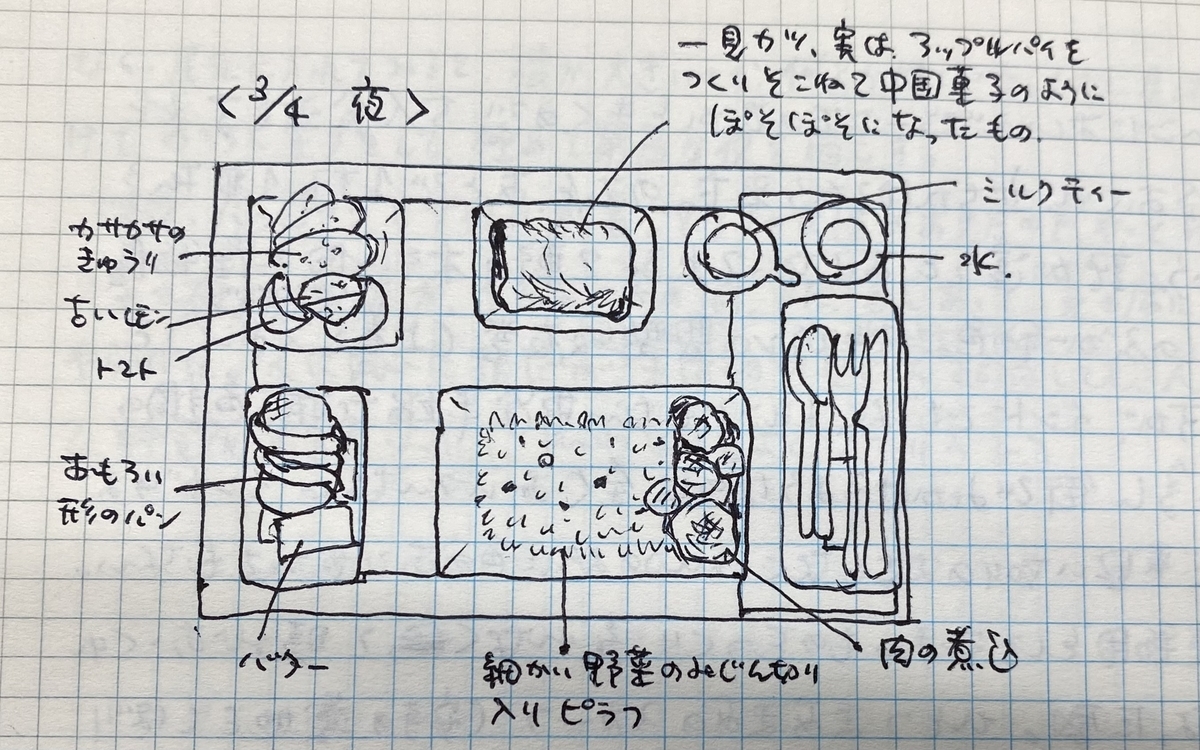 一見カツ、実は、アップルパイを
つくりそこねて中国菓子のように
ぼそぼそになったもの.
<3/4 夜>
ミルクティー
水.
カサカサの
きゅうり
古いレモン
トマト
おもろい
形のパン
バター
細かい野菜のみじん切り
入りピラフ
肉の煮込